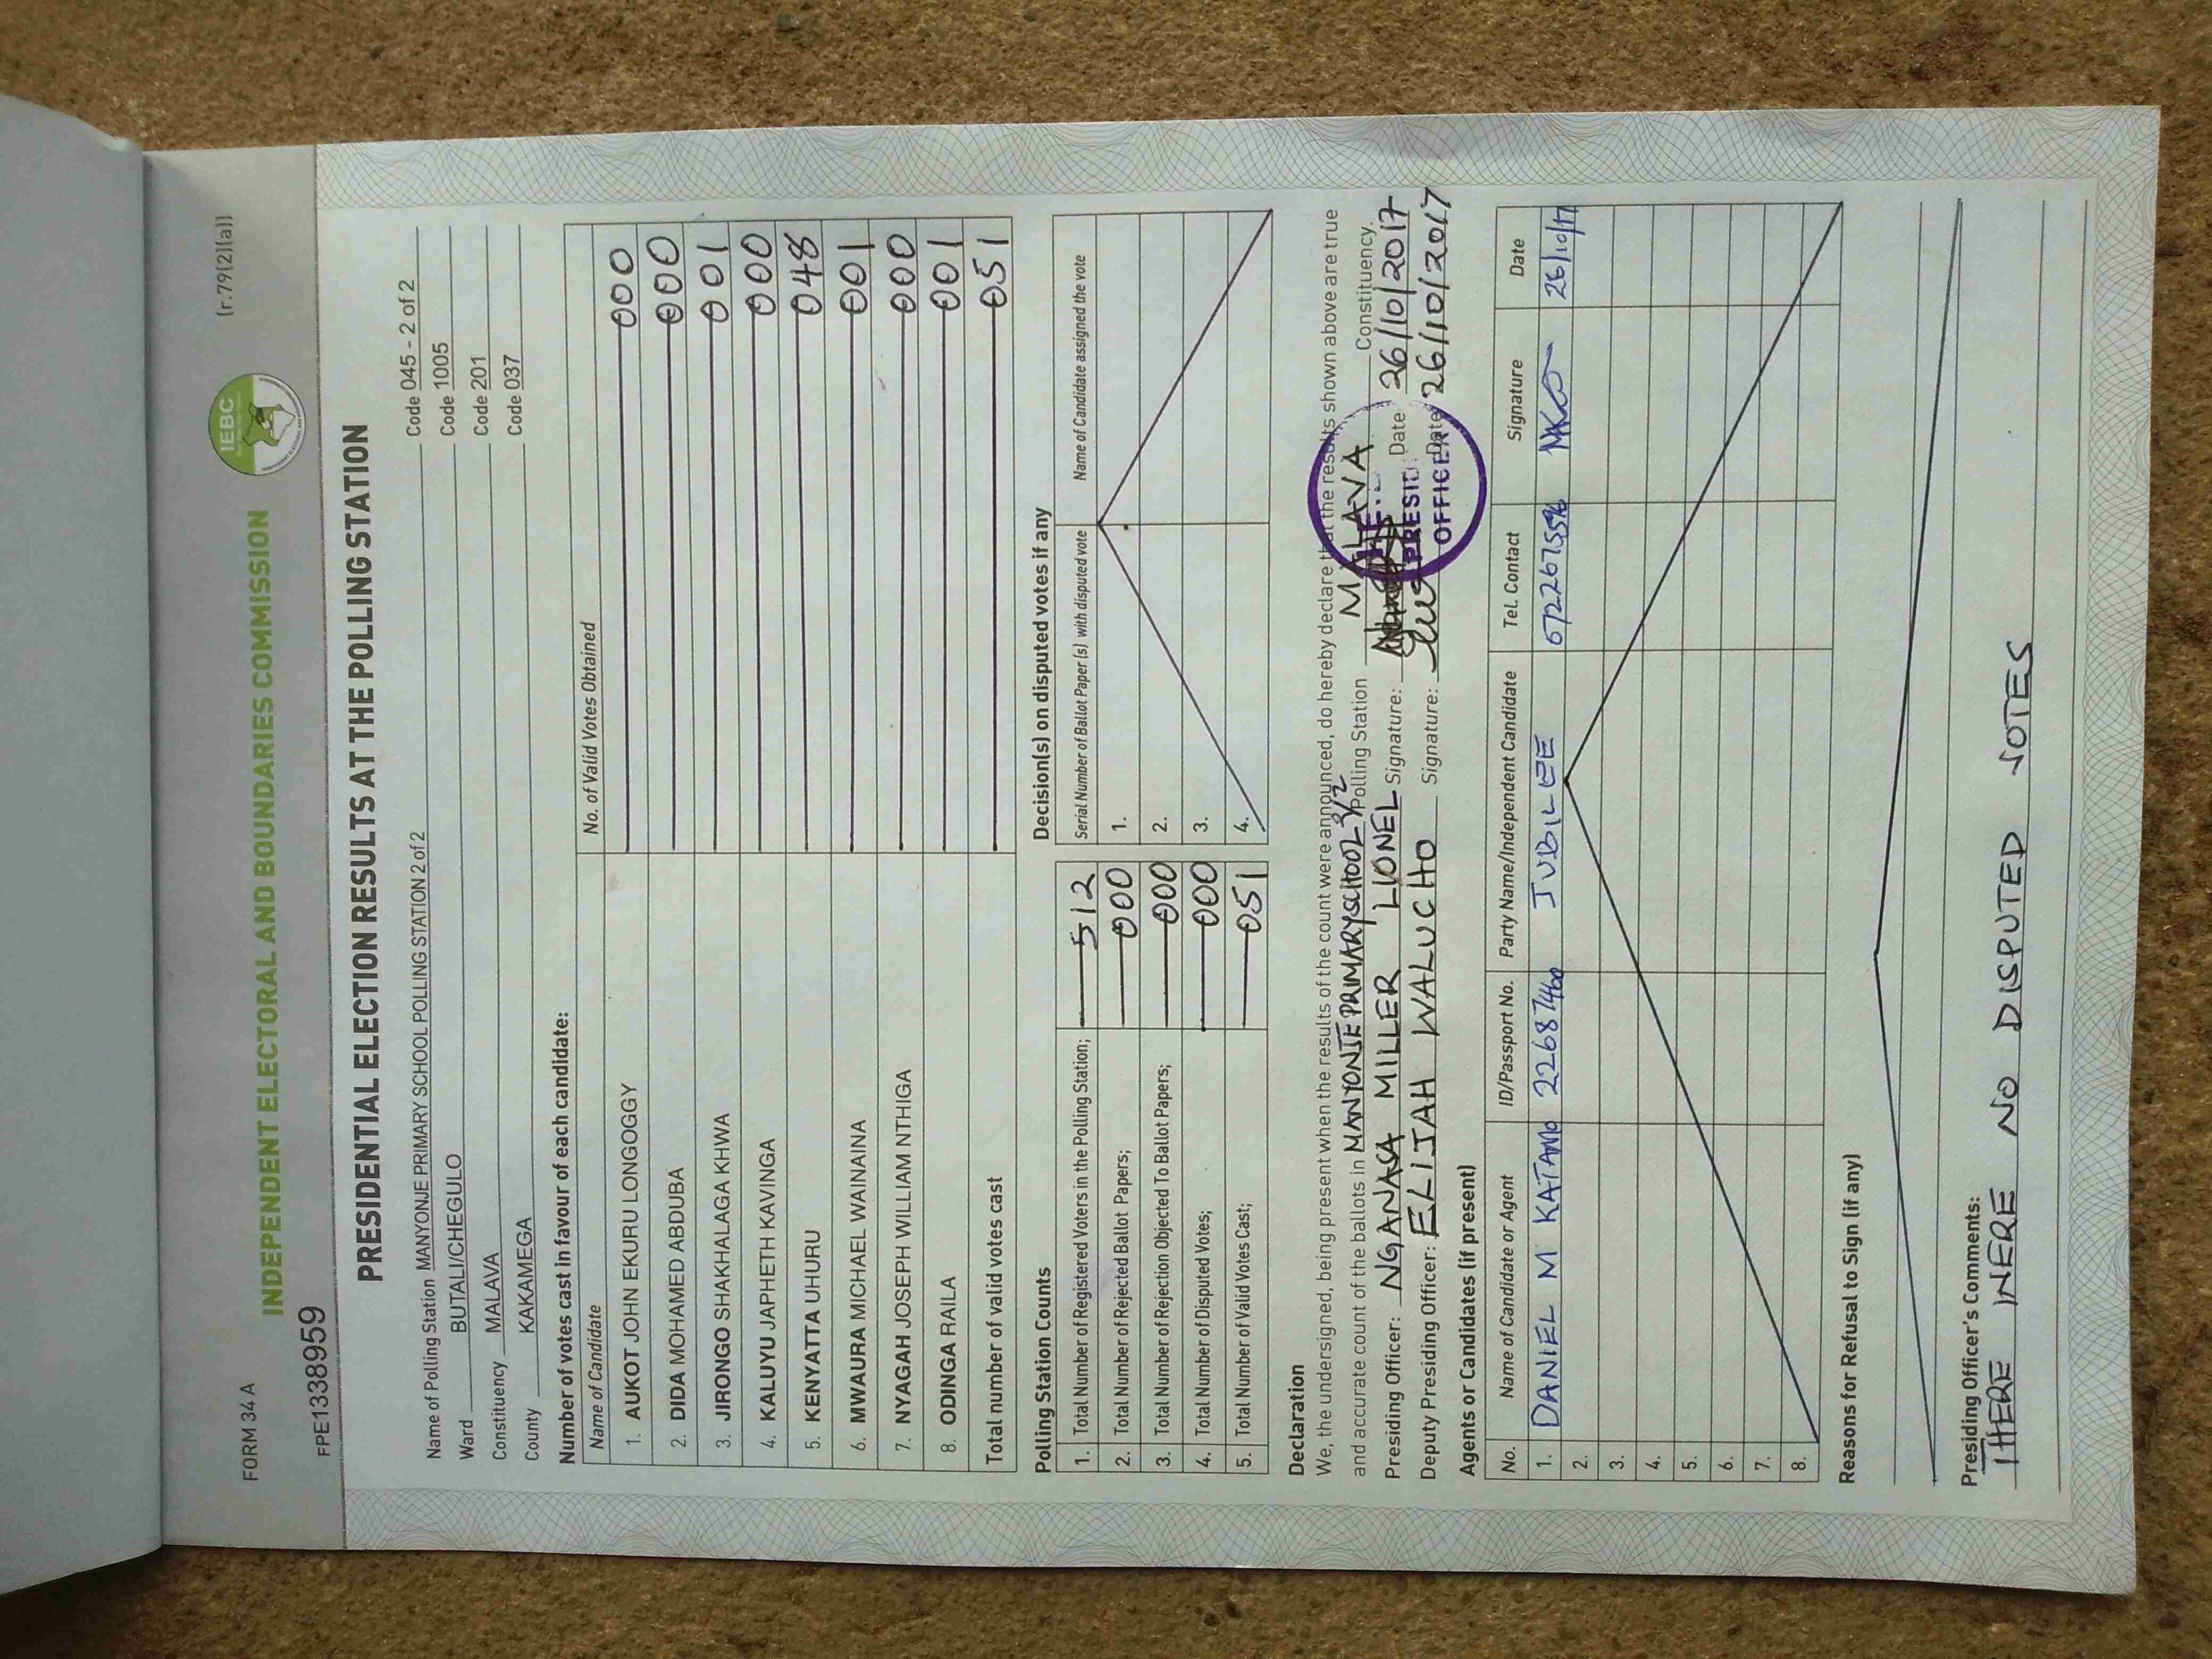 FORM 34 A
(r.79(2)(a))
IEBC
INDEPENDENT ELECTORAL AND BOUNDARIES COMMISSION
FPE1338959
PRESIDENTIAL ELECTION RESULTS AT THE POLLING STATION
Name of Polling Station MANYONJE PRIMARY SCHOOL POLLING STATION 2 of 2 Code 045 - 2 of 2
Ward BUTALI/CHEGULO Code 1005
Constituency MALAVA Code 201
County KAKAMEGA Code 037
Number of votes cast in favour of each candidate:
Name of Candidate No. of Valid Votes Obtained
1. AUKOT JOHN EKURU LONGOGGY 000
2. DIDA MOHAMED ABDUBA 000
3. JIRONGO SHAKHALAGA KHWA 001
4. KALUYU JAPHETH KAVINGA 000
5. KENYATTA UHURU 048
6. MWAURA MICHAEL WAINAINA 001
7. NYAGAH JOSEPH WILLIAM NTHIGA 000
8. ODINGA RAILA 001
Total number of valid votes cast 051
Polling Station Counts
1. Total Number of Registered Voters in the Polling Station; 512
2. Total Number of Rejected Ballot Papers; 000
3. Total Number of Rejection Objected To Ballot Papers; 000
4. Total Number of Disputed Votes; 000
5. Total Number of Valid Votes Cast; 051
Decision(s) on disputed votes if any
Serial Number of Ballot Paper (s) with disputed vote Name of Candidate assigned the vote
1.
2.
3.
4.
Declaration
We, the undersigned, being present when the results of the count were announced, do hereby declare that the results shown above are true
and accurate count of the ballots in MANYONJE PRIMARY SCHOOL Polling Station MALAVA Constituency.
Presiding Officer: NGANASA MILLER LIONEL Signature: Date 26/10/2017
Deputy Presiding Officer: ELIJAH WALUCHO Signature: Date 26/10/2017
OFFICER
Agents or Candidates (if present)
No. Name of Candidate or Agent ID/Passport No. Party Name/Independent Candidate Tel. Contact Signature Date
1. DANIEL M KATAMO 22687460 JUBILEE 0722675596 26/10/17
2.
3.
4.
5.
6.
7.
8.
Reasons for Refusal to Sign (if any)
Presiding Officer's Comments:
THERE WERE NO DISPUTED VOTES